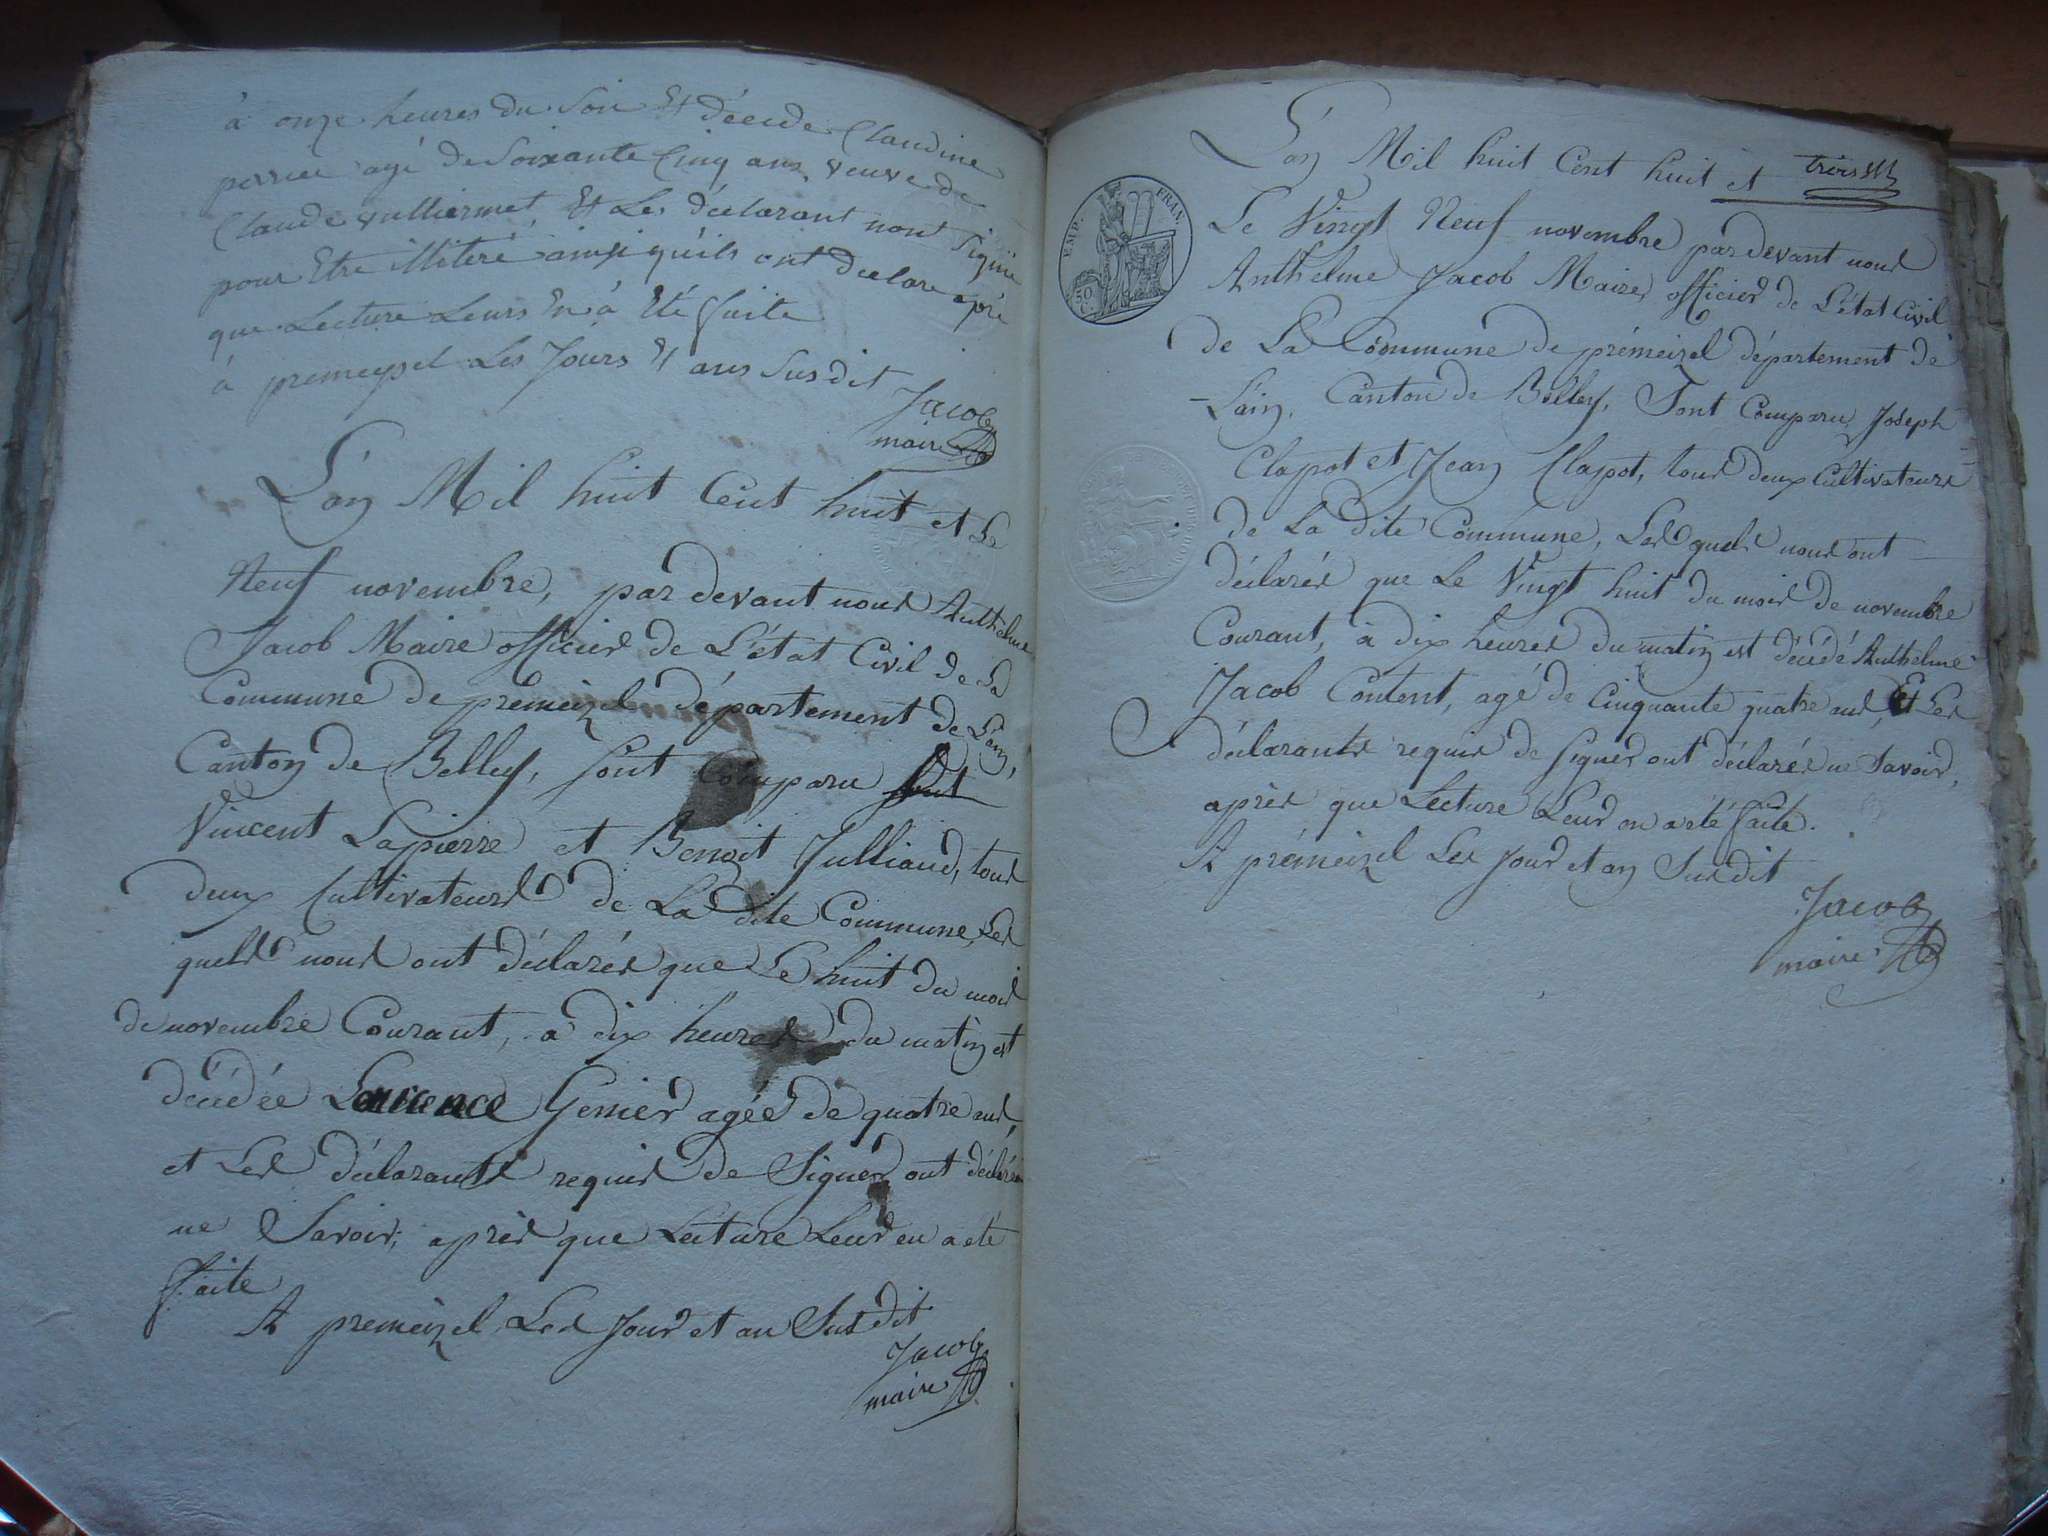 à onze heures du Soir Et décédé Claudine
perrier agé de Soixante Cinq ans, veuve de
Claude vulliermet, Et Les déclarant nont Signié
pour Etre illitéré ainsi quils ont declare apré
que Lecture Leurs En à Eté faite
à premeysel Les Jours Et ans Susdit
Jacob
maire
L'an Mil huit Cent huit et Le
Neuf novembre, par devant nous Anthelme
Jacob Maire officier de L'état Civil de La
Commune de premeizel département de L'ain,
Canton de Belley, Sont Comparu
Vincent Lapierre et Benoit Julliand, tous
deux Cultivateurs de La dite Commune, Les
quels nous ont déclarés que Le huit du mois
de novembre Courant, à dix heures du matin est
décédée Laurence Genier agée de quatre ans,
et Les déclarants requis de Signer ont déclarés
ne Savoir, après que Lecture Leur en a eté
faite
A premeizel Les Jour et an Susdit
Jacob
maire
trois
L'an Mil huit Cent huit et
Le Vingt Neuf novembre par devant nous
Anthelme Jacob Maire officier de L'état Civil
de La Commune de prémeizel département de
Lain, Canton de Belley, Sont Comparu Joseph
Clapot et Jean Clapot, tous deux Cultivateurs
de La dite Commune, Les quels nous ont
déclarés que Le Vingt huit du mois de novembre
Courant, à dix heures du matin est décédé Anthelme
Jacob Content, agé de Cinquante quatre ans, Et Les
déclarants requis de Signer ont déclarés ne Savoir,
après que Lecture Leur en a eté faite.
A prémeizel Les Jour et an Susdit
Jacob
maire
EMP. FRAN.
50 C.